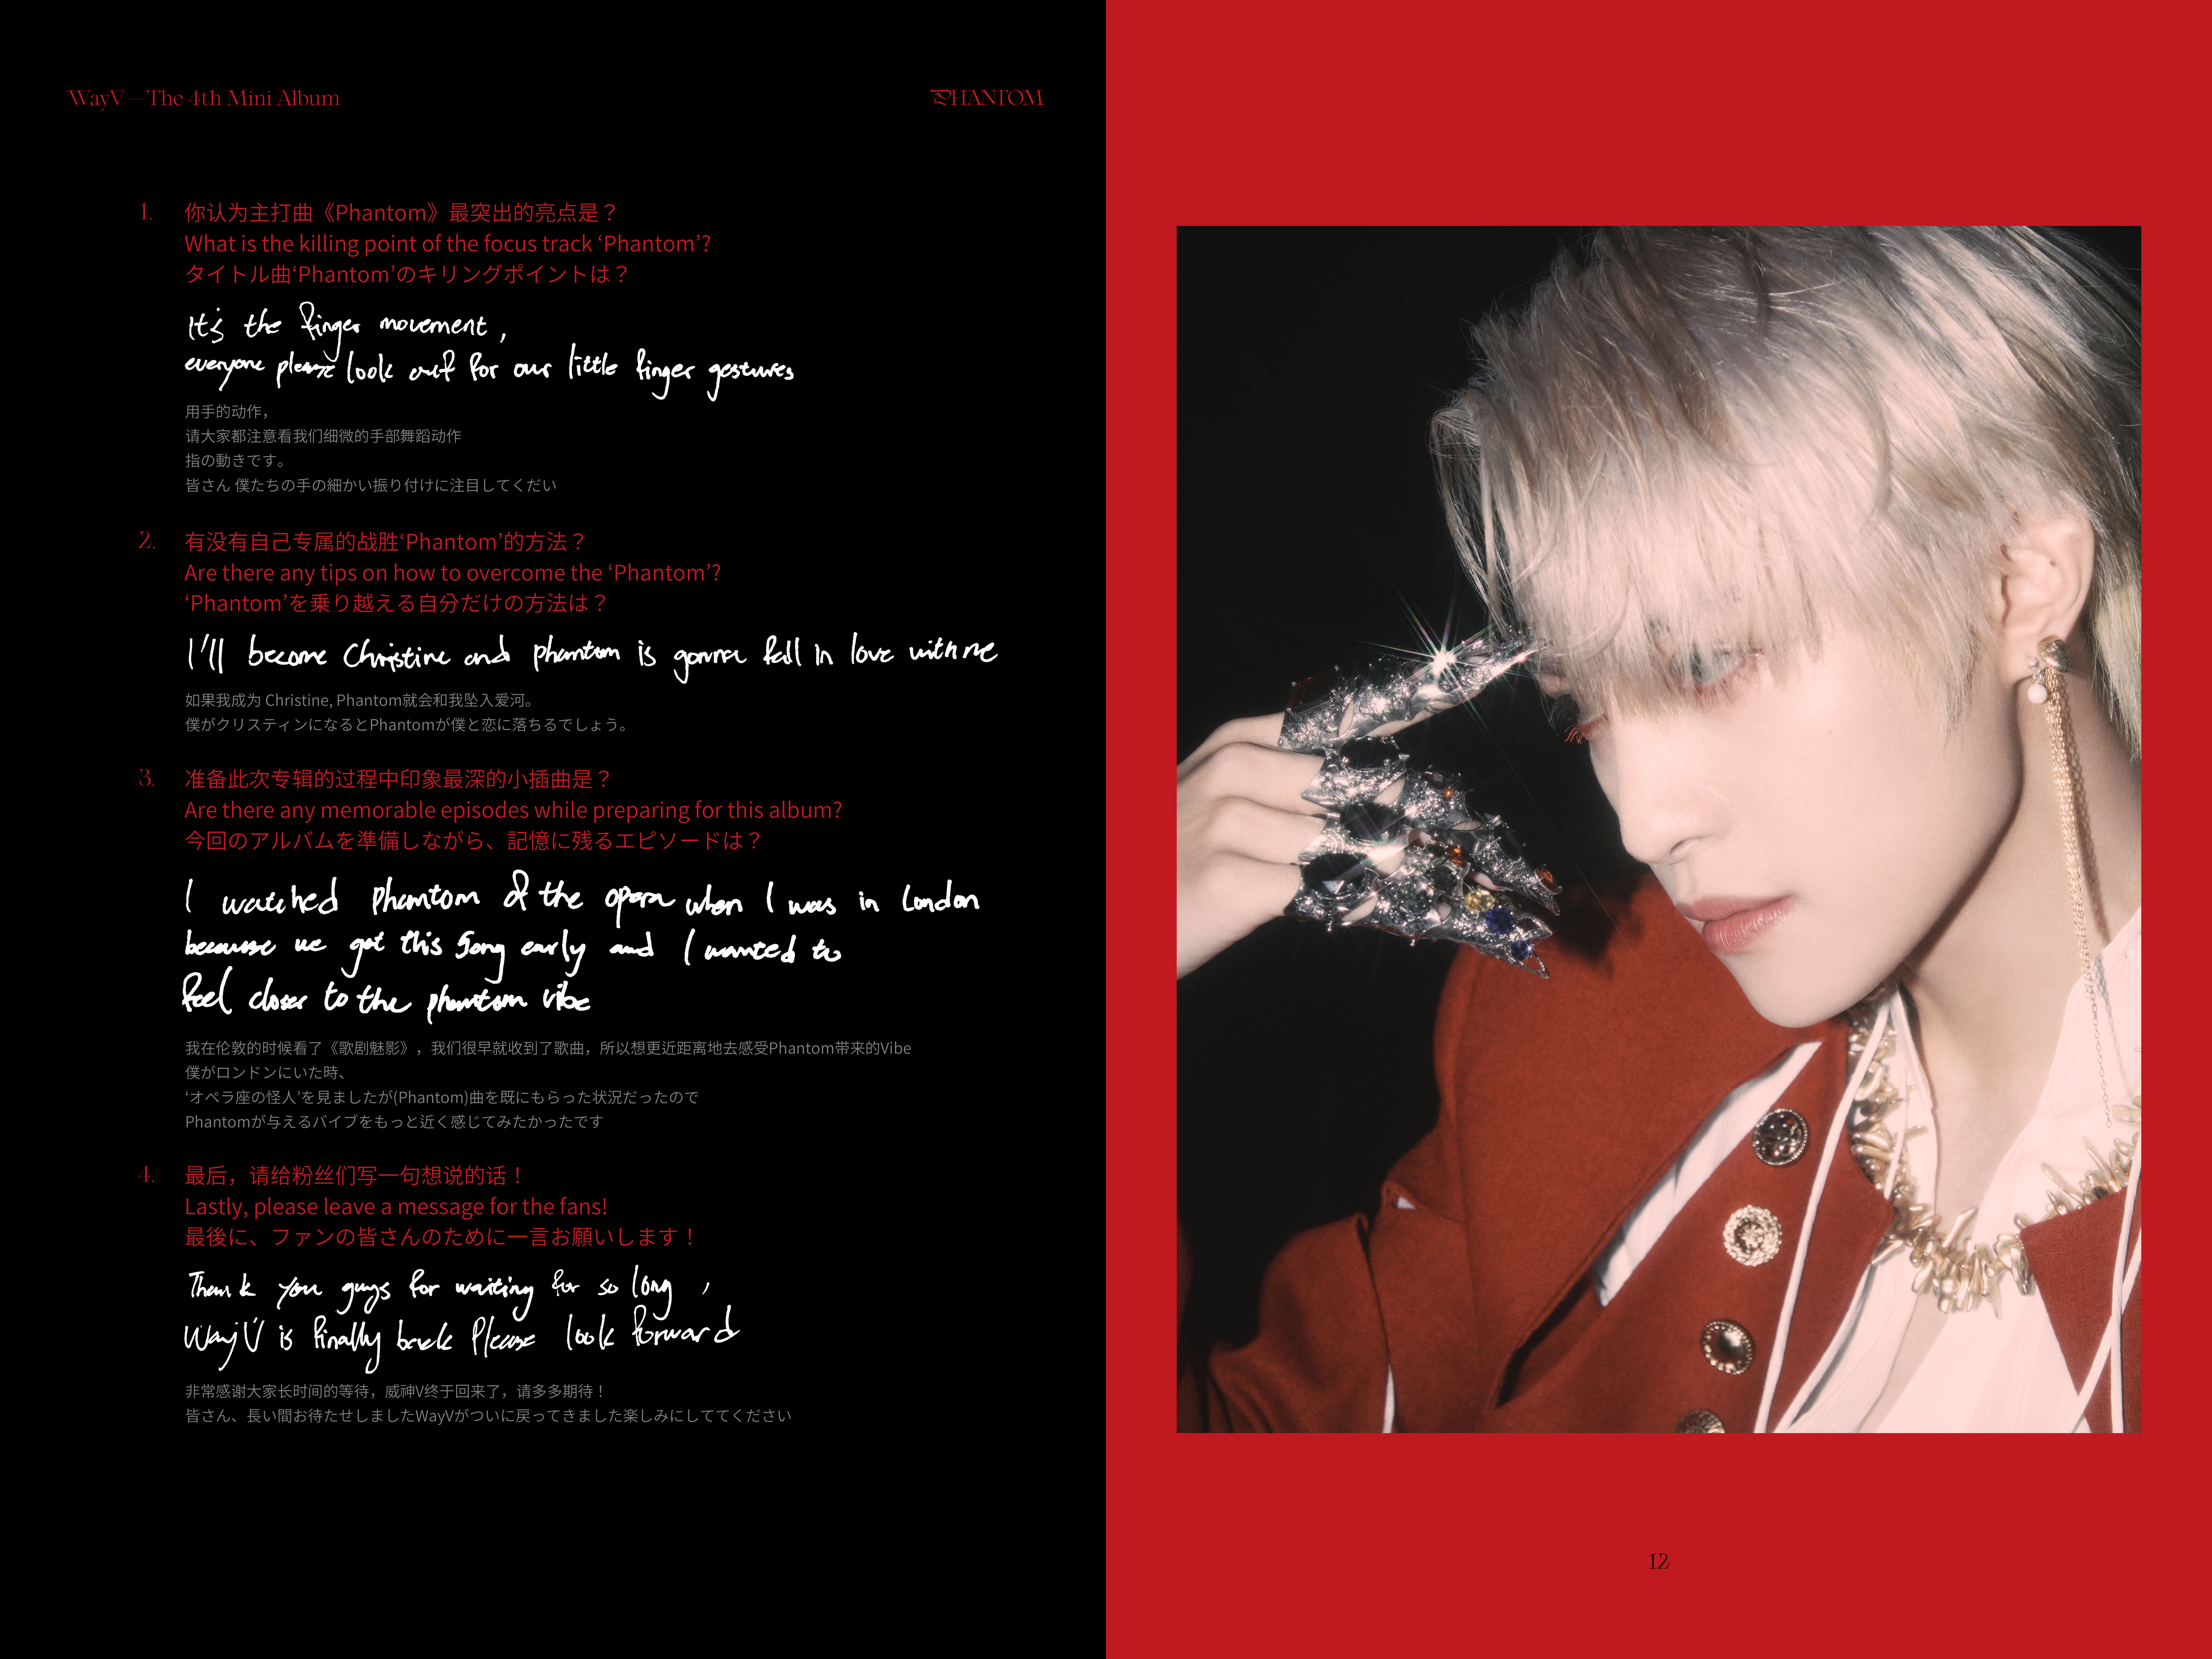 WayV – The 4th Mini Album
PHANTOM
1. 你认为主打曲《Phantom》最突出的亮点是？
What is the killing point of the focus track ‘Phantom’?
タイトル曲‘Phantom’のキリングポイントは？
It's the finger movement,
everyone please look out for our little finger gestures
用手的动作，
请大家都注意看我们细微的手部舞蹈动作
指の動きです。
皆さん 僕たちの手の細かい振り付けに注目してくだい
2. 有没有自己专属的战胜‘Phantom’的方法？
Are there any tips on how to overcome the ‘Phantom’?
‘Phantom’を乗り越える自分だけの方法は？
I'll become Christine and phantom is gonna fall in love with me
如果我成为 Christine, Phantom就会和我坠入爱河。
僕がクリスティンになるとPhantomが僕と恋に落ちるでしょう。
3. 准备此次专辑的过程中印象最深的小插曲是？
Are there any memorable episodes while preparing for this album?
今回のアルバムを準備しながら、記憶に残るエピソードは？
I watched Phantom of the opera when I was in London
because we got this song early and I wanted to
feel closer to the phantom vibe
我在伦敦的时候看了《歌剧魅影》，我们很早就收到了歌曲，所以想更近距离地去感受Phantom带来的Vibe
僕がロンドンにいた時、
‘オペラ座の怪人’を見ましたが(Phantom)曲を既にもらった状況だったので
Phantomが与えるバイブをもっと近く感じてみたかったです
4. 最后，请给粉丝们写一句想说的话！
Lastly, please leave a message for the fans!
最後に、ファンの皆さんのために一言お願いします！
Thank you guys for waiting for so long ,
WayV is finally back Please look forward
非常感谢大家长时间的等待，威神V终于回来了，请多多期待！
皆さん、長い間お待たせしましたWayVがついに戻ってきました楽しみにしててください
12